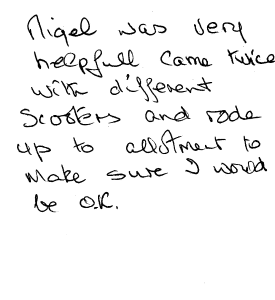 Nigel was very
helpfull came twice
with different
Scooters and rode
up to allotment to
Make sure I would
be O.K.